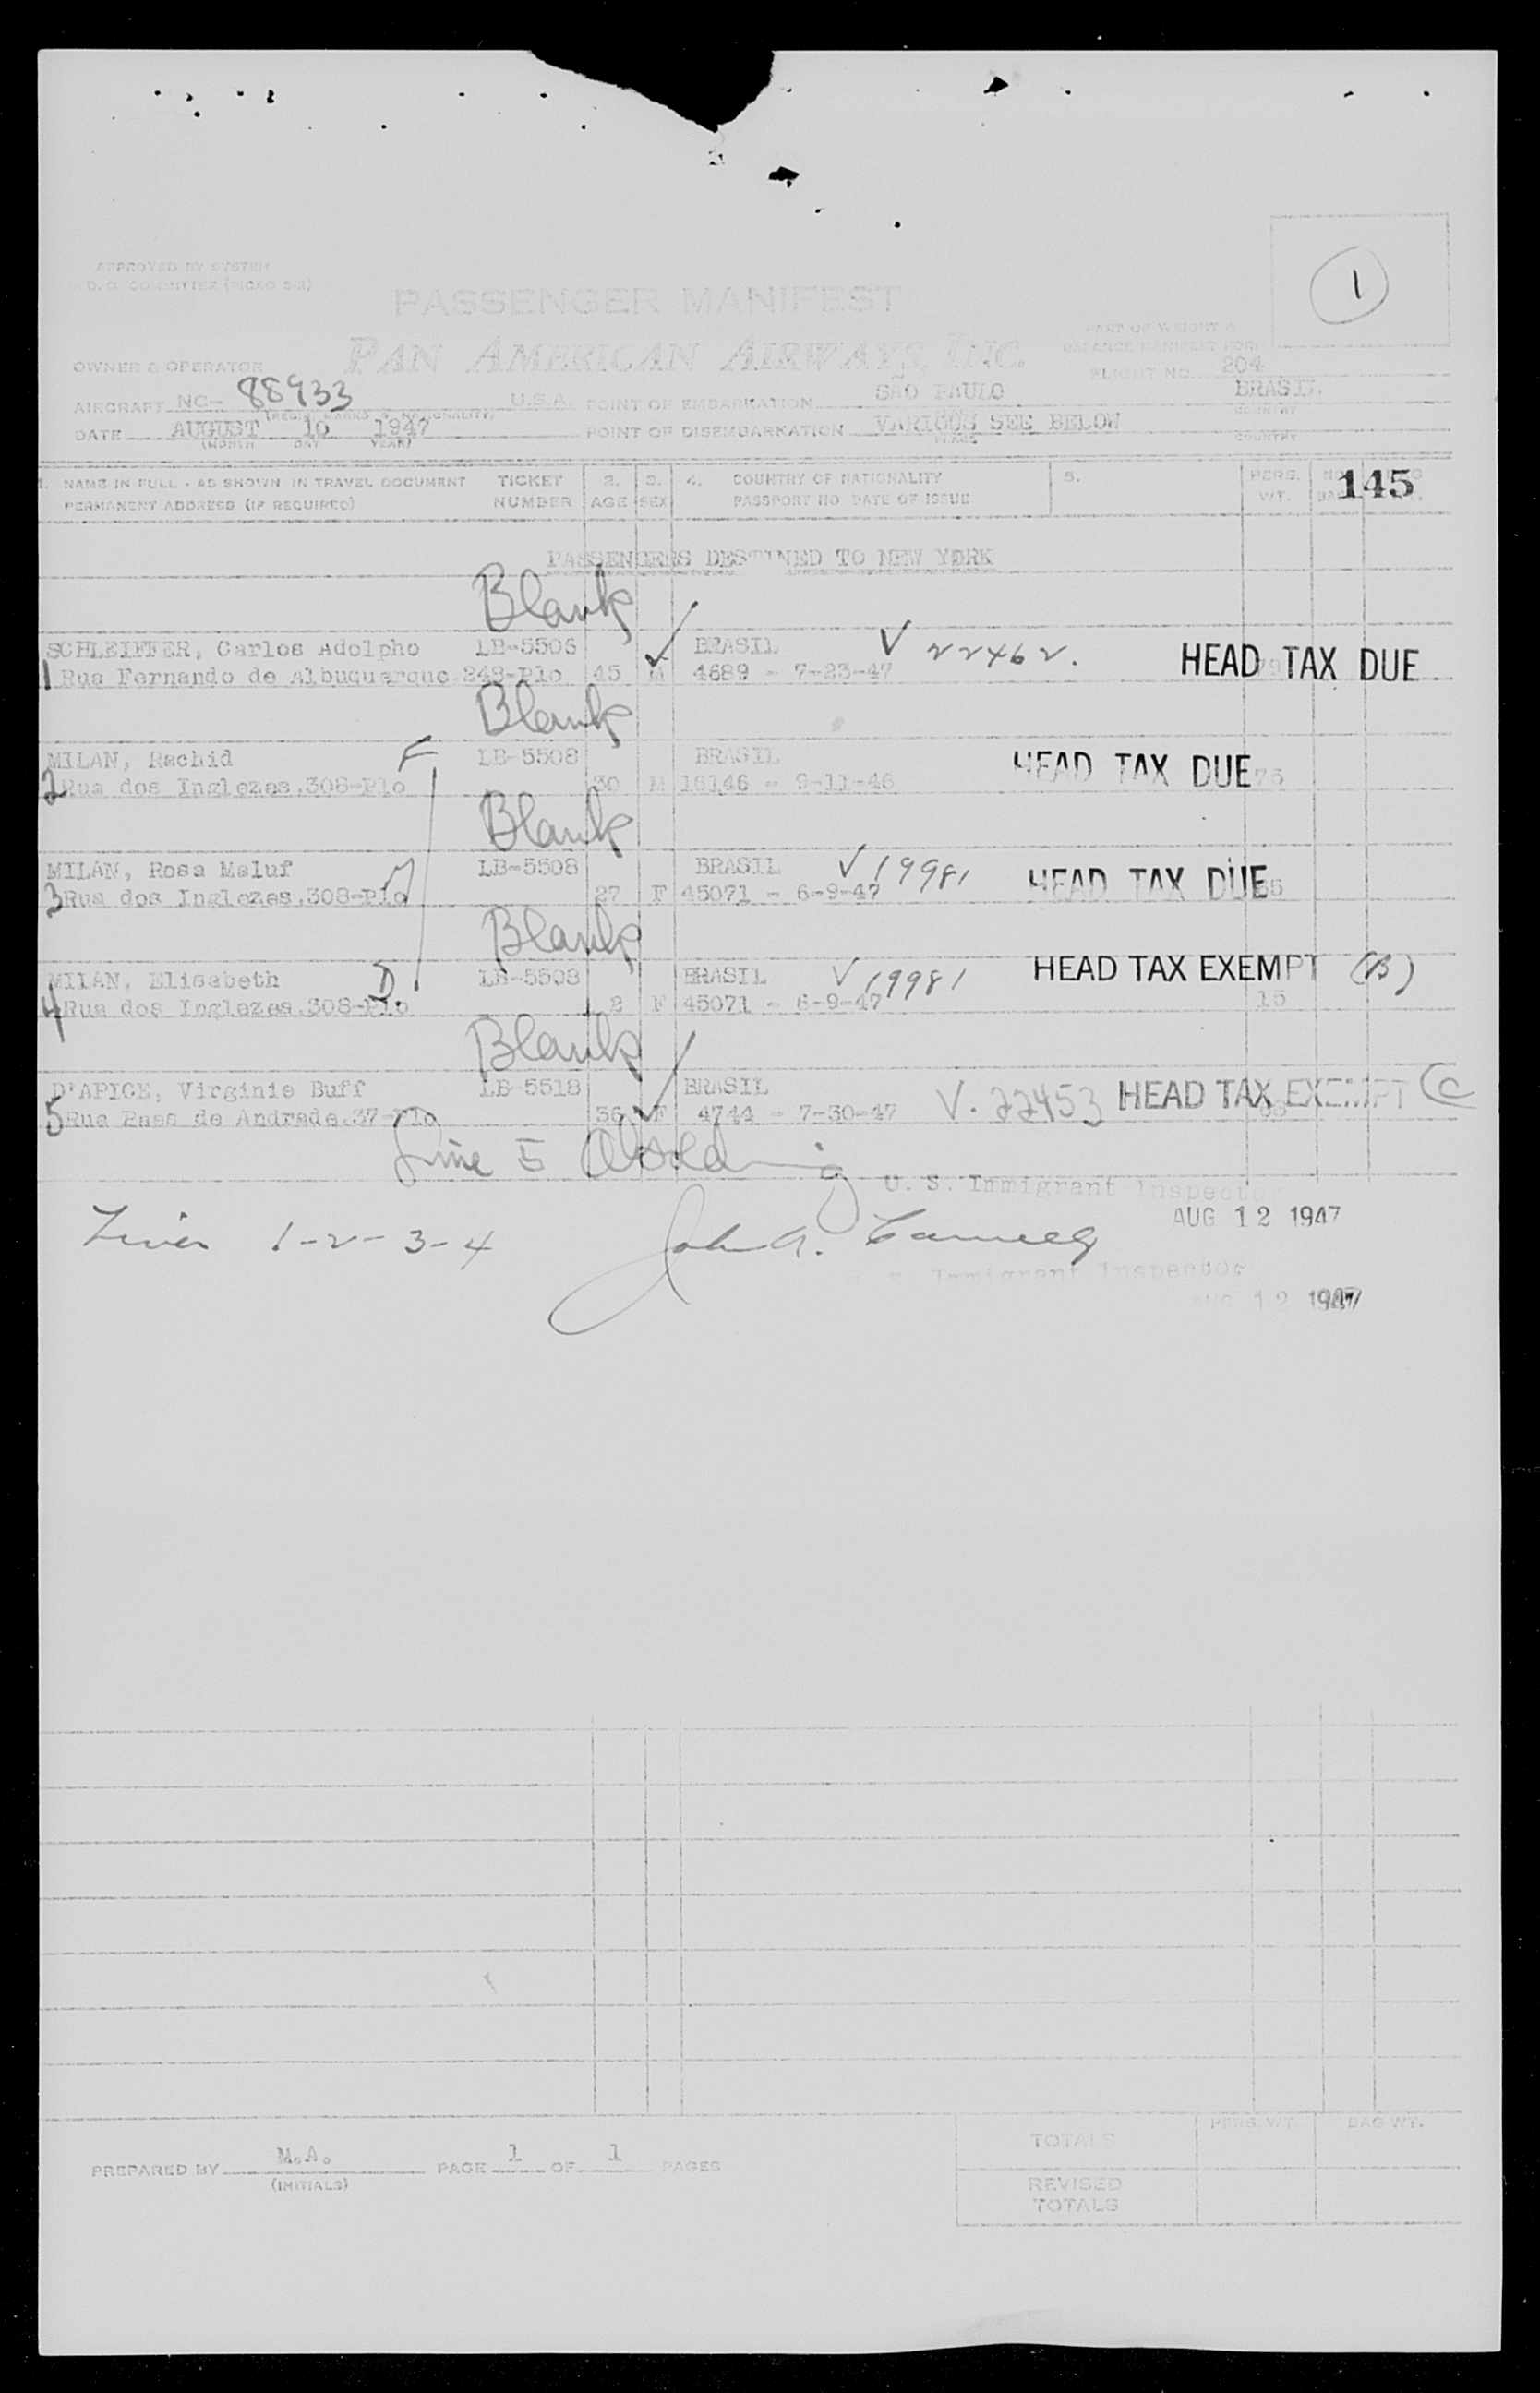 1
APPROVED BY SYSTEM
PASSENGER MANIFEST
PAN AMERICAN AIRWAYS, INC.
PART OF WEIGHT &
BALANCE MANIFEST FOR
OWNER & OPERATOR
FLIGHT NO. 204
AIRCRAFT NC- 88933 U.S.A. POINT OF EMBARKATION SÃO PAULO BRASIL
COUNTRY
DATE AUGUST 10 1947 POINT OF DISEMBARKATION VARIOUS SEE BELOW
(MONTH DAY YEAR) PLACE COUNTRY
1. NAME IN FULL - AS SHOWN IN TRAVEL DOCUMENT TICKET 2. 3. 4. COUNTRY OF NATIONALITY 5. PERS.
PERMANENT ADDRESS (IF REQUIRED) NUMBER AGE SEX PASSPORT NO DATE OF ISSUE WT. 145
PASSENGERS DESTINED TO NEW YORK
Blank
SCHLEIFFER, Carlos Adolpho LB-5506 BRASIL V 22462.
1 Rua Fernando de Albuquerque 248-Plo 45 M 4689 - 7-23-47 HEAD TAX DUE
Blank
MILAN, Rachid F LB-5508 BRASIL HEAD TAX DUE
2 Rua dos Inglezes.308-Plo 30 M 16146 - 9-11-46 75
Blank
MILAN, Rosa Maluf LB-5508 BRASIL V 19981 HEAD TAX DUE
3 Rua dos Inglezes.308-Plo 27 F 45071 - 6-9-47
Blank
MILAN, Elisabeth D. LB-5508 BRASIL V 19981 HEAD TAX EXEMPT (B)
4 Rua dos Inglezes.308-Plo 2 F 45071 - 6-9-47 15
Blank
D'APICE, Virginie Buff LB-5518 BRASIL V. 22453 HEAD TAX EXEMPT C
5 Rua de Andrade.37-Plo 36 F 4744 - 7-30-47
Line 5
U. S. Immigrant Inspector
AUG 12 1947
1-2-3-4 John A.
U. S. Immigrant Inspector
AUG 12 1947
PREPARED BY M.A. PAGE 1 OF 1 PAGES
(INITIALS)
PERS. WT. BAG WT.
TOTALS
REVISED
TOTALS